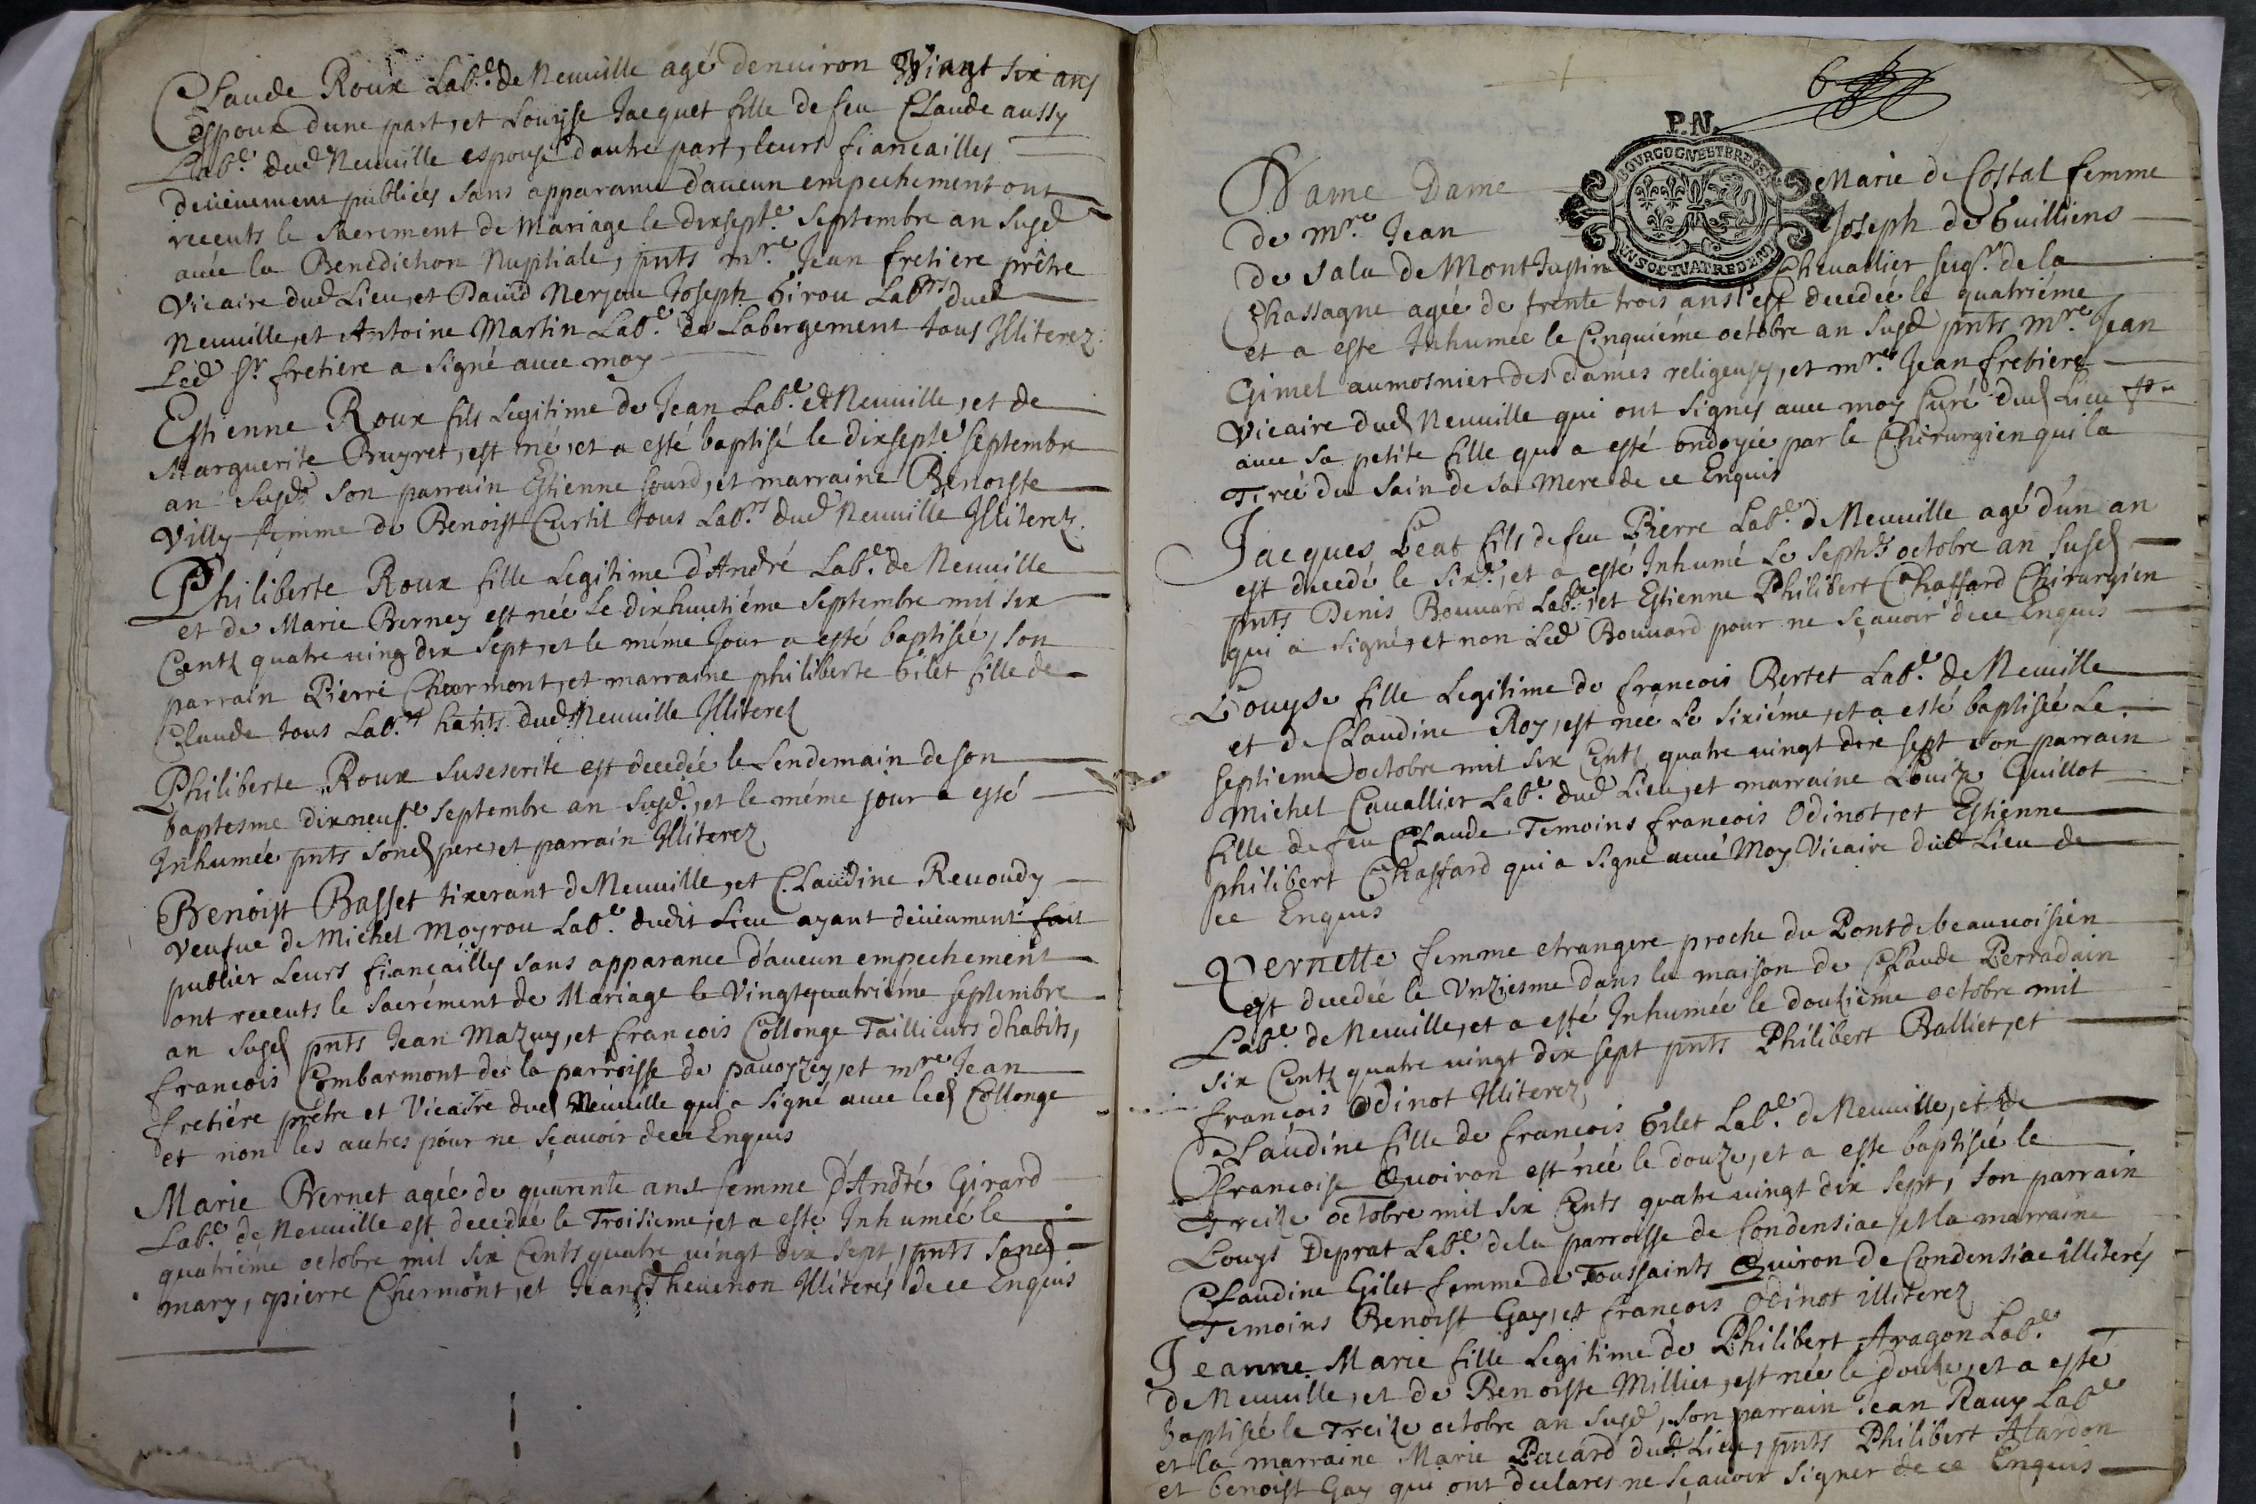 Claude Roux Lab.e de Neuuille agé denuiron Vingt six ans
Espoux dune part, et Louyse Jacquet fille de feu Claude aussy
Lab.e dud Neuuille espouse dautre part, leurs fiancailles
deüement publiées sans apparance d'aucun empechement ont
receuts le sacrement de Mariage le dixsept.e Septembre an susd
auec la Benediction Nuptiale, pnts m.re Jean fretiere prêtre
Vicaire dud Lieu, et Dauid Nerjou Joseph Girou Lab.rs dud
Neuuille, et Antoine Martin Lab.e de Labergement tous Illiterez.
Led Sr. fretiere a signé auec moy
Estienne Roux fils Legitime de Jean Lab.e de Neuuille, et de
Marguerite Bruyret, est né, et a esté baptisé le dixsepte Septembre
an susd. Son parrain Estienne Gourd, et marraine Benoiste
Villy femme de Benoist Curtil tous Lab.rs dud Neuuille Illiterez.
Philiberte Roux fille Legitime d'André Lab.e de Neuuille
et de Marie Berney est née Le dixhuictiéme Septembre mil six
Cents quatre uing dix sept, et le méme Jour a esté baptisée, son
parrain Pierre Charmont, et marraine philiberte Gilet fille de
Claude tous Lab.rs hants dud. Neuuille Illiterez
Philiberte Roux suscrite est decedée le Lendemain de son
baptesme dixneufe Septembre an Susd., et le méme jour a esté
Inhumée pnts Sond pere, et parrain Illiterez
Benoist Basset tixerant de Neuuille, et Claudine Reuoudy
Veufue de Michel Moyrou Lab.e dudit Lieu ayant deüeument fait
publier Leurs fiançailles sans apparance d'aucun empechement
ont receuts le Sacrément de Mariage le Vingtquatriéme Septembre
an Susd pnts Jean Mazuy, et françois Collonge Taillieurs dhabits,
françois Combarmont de la parroisse de pauoyzey, et m.re Jean
fretiére prêtre et Vicaire dud Neuuille qui a Signé auec led Collonge
et non les autres pour ne sçauoir de ce Enquis
Marie Bernet agée de quarente ans femme d'André Girard
Lab.e de Neuuille est decedée le Troisieme, et a este Inhumée le
quatriéme octobre mil six Cents quatre uingt dix sept, pnts Sond
mary, pierre Chermont, et Jean Theuenon Illiterés de ce Enquis
6
P.N.
BOURGOGNE ET BRESSE
UN SOL QUATRE DEN
Dame Dame Marie de Costal femme
de m.re Jean Joseph de Guilliens
de Sala de MontJustin Cheuallier seigr. de la
Chassagne agée de trente trois ans est decedée le quatriéme
et a este Inhumée le Cinquiéme octobre an Susd pnts m.re Jean
Gimel aumosnier des dames religeuses, et m.re Jean fretiere
Vicaire dud Neuuille qui ont Signés auec moy Curé dud Lieu
auec sa petite fille qui a esté ondoyée par le Chirurgien qui la
Tirée du Sain de Sa Mere de ce Enquis
Jacques Leat fils de feu Pierre Lab.e de Neuuille agé d'un an
est decedé le six.e, et a esté Inhumé Le Septie octobre an Susd
pnts Denis Bouuard Lab.e, et Estienne Philibert Chaffard Chirurgien
qui a Signé, et non Led Bouuard pour ne sçauoir de ce Enquis
Louyse fille Legitime de françois Bertet Lab.e de Neuuille
et de Claudine Roy, est née Le Sixiéme, et a esté baptisée Le
Septieme octobre mil six Cents quatre uingt dix sept son parrain
Michel Cauallier Lab.e dud Lieu, et marraine Louize Guillot
fille de feu Claude Temoins françois Odinot, et Estienne
philibert Chaffard qui a Signé auec Moy Vicaire dud Lieu de
ce Enquis
Pernette femme etrangere proche du Pontdebeauuoisien
est decedée le Vnziesme dans la maison de Claude Perradain
Lab.e de Neuuille, et a esté Inhumée le douziéme octobre mil
six Cents quatre uingt dix sept pnts Philibert Balliet, et
françois Odinot Illiterez
Claudine fille de françois Gilet Lab.e de Neuuille, et de
françoise Quoiron est née le douze, et a este baptisée le
Treize octobre mil six Cents quatre uingt dix sept, son parrain
Louys Deprat Lab.e dela parroisse de Condensiae, et la marraine
Claudine Gilet femme de Toussaints Quiron de Condensiae illiterés
Temoins Benoist Gay, et françois Odinot illiterez
Jeanne Marie fille Legitime de Philibert Aragon Lab.e
de Neuuille, et de Benoiste Milliet, est née le douze, et a esté
baptisée le Treize octobre an susd, son parrain Jean Rauy Labe
et la marraine Marie Pacard dud Lieu, pnts Philibert Alardon
et benoist Gay qui ont declares ne sçauoir Signer de ce Enquis